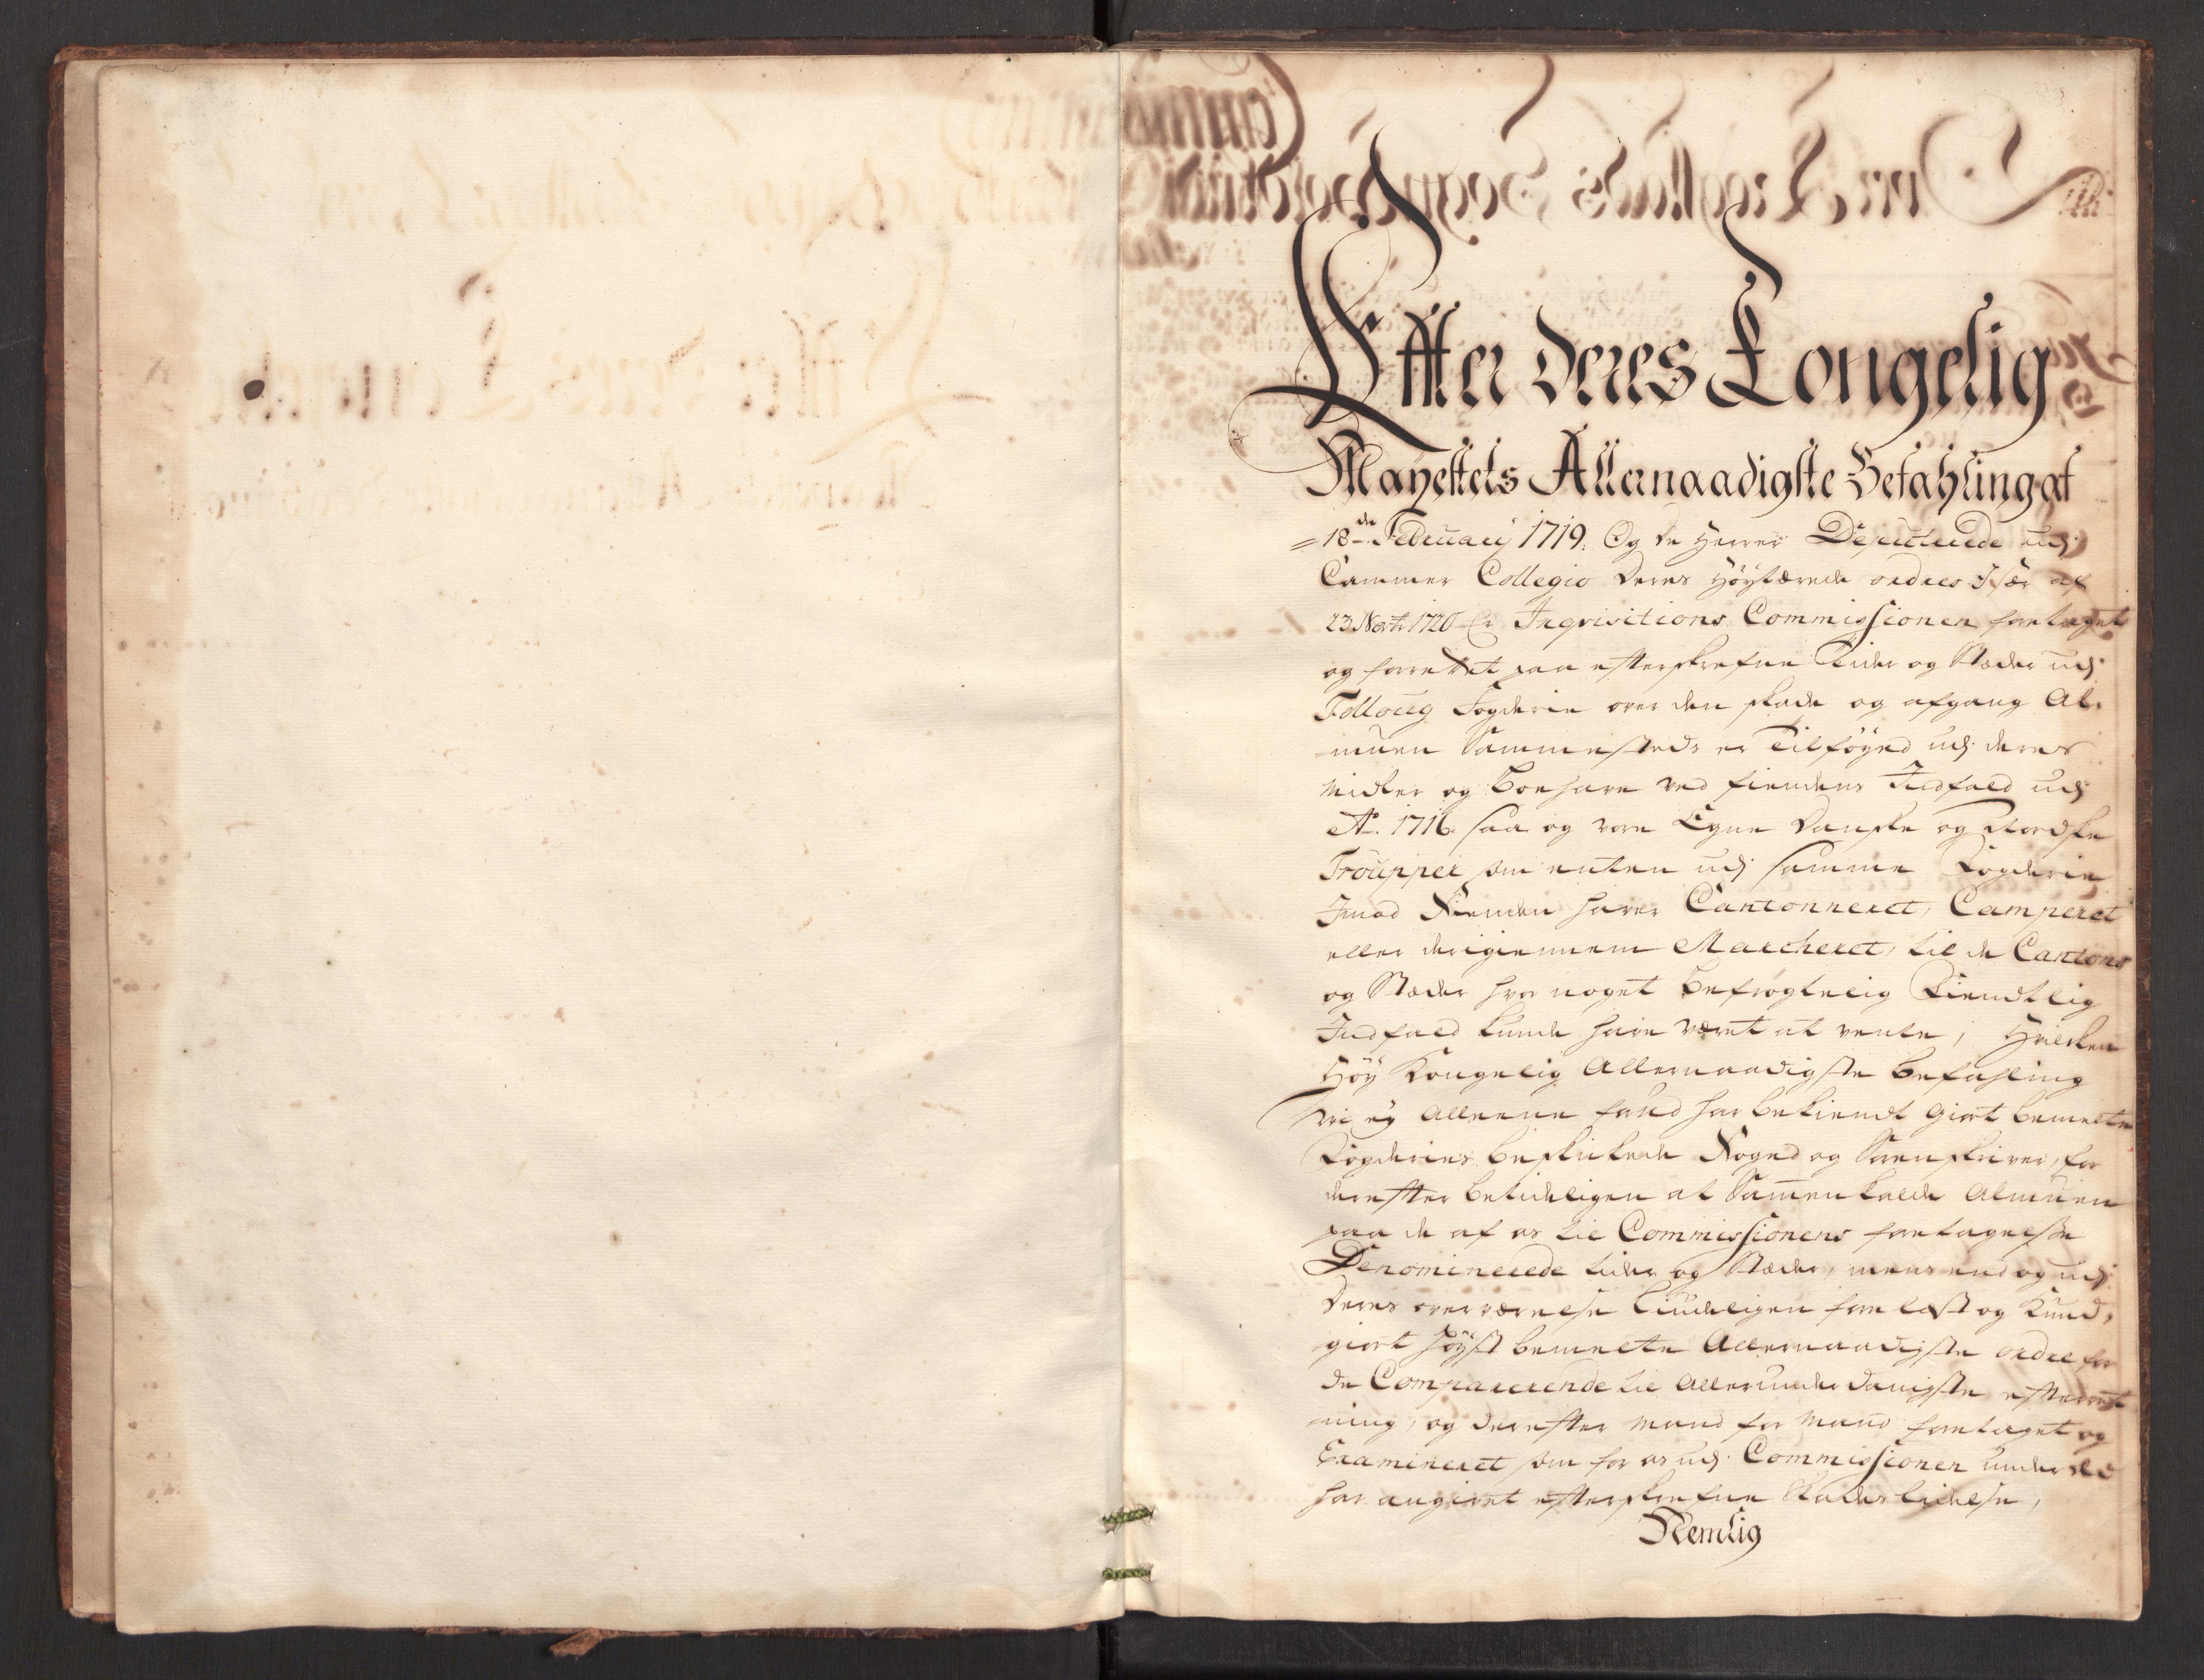 Effter Deres Kongelig
Mayestets Allernaadigste Befahling af
18de Februarij 1719. Og de Herrer Deputerede udj
Cammer Collegio deres Höytærede ordres Især af
23 Novbr 1720 Er Inqvisitions Commissionen foretaget
og forrettet paa efterskrefne Tider og Stæder udj
Folloug Fogderie over den skade og afgang Al-
muen Sammesteds er Tilföyed udj deres
Midler og Boehave ved fiendens Indfald udj
Ao. 1716. saa og vore Egne Danske og Nordske
Troupper som enten udj samme Fogderie
Imod Fienden haver Cantonneret, Camperet
eller derigiennem Marcheret, til de Cantons
og Stæder hvor noget befrögtelig Fiendtlig
Indfald kunde have været at vente, Hvilken
Höy Kongelig Allernaadigste Befahling
vi ey Alleene har bekiendt giort bemelte
Fogderies beskickede Foged og Sorenskriver, for
derefter betideligen at Sammenkalde Almuen
paa de af os til Commissionens foretagelse
Denominerede tider og Stæder, mens end og udj
Deres overværelse liudeligen forelæst og Kund-
giort höyst bemelte Allernaadigste ordre for
de Comparerende til Allerunderdanigste efterret-
ning, og derefter Mand for Mand foretaget og
Examineret som for os udj Commissionen under Ed
har angivet efterskrefne Skades lidelse,
Nemlig